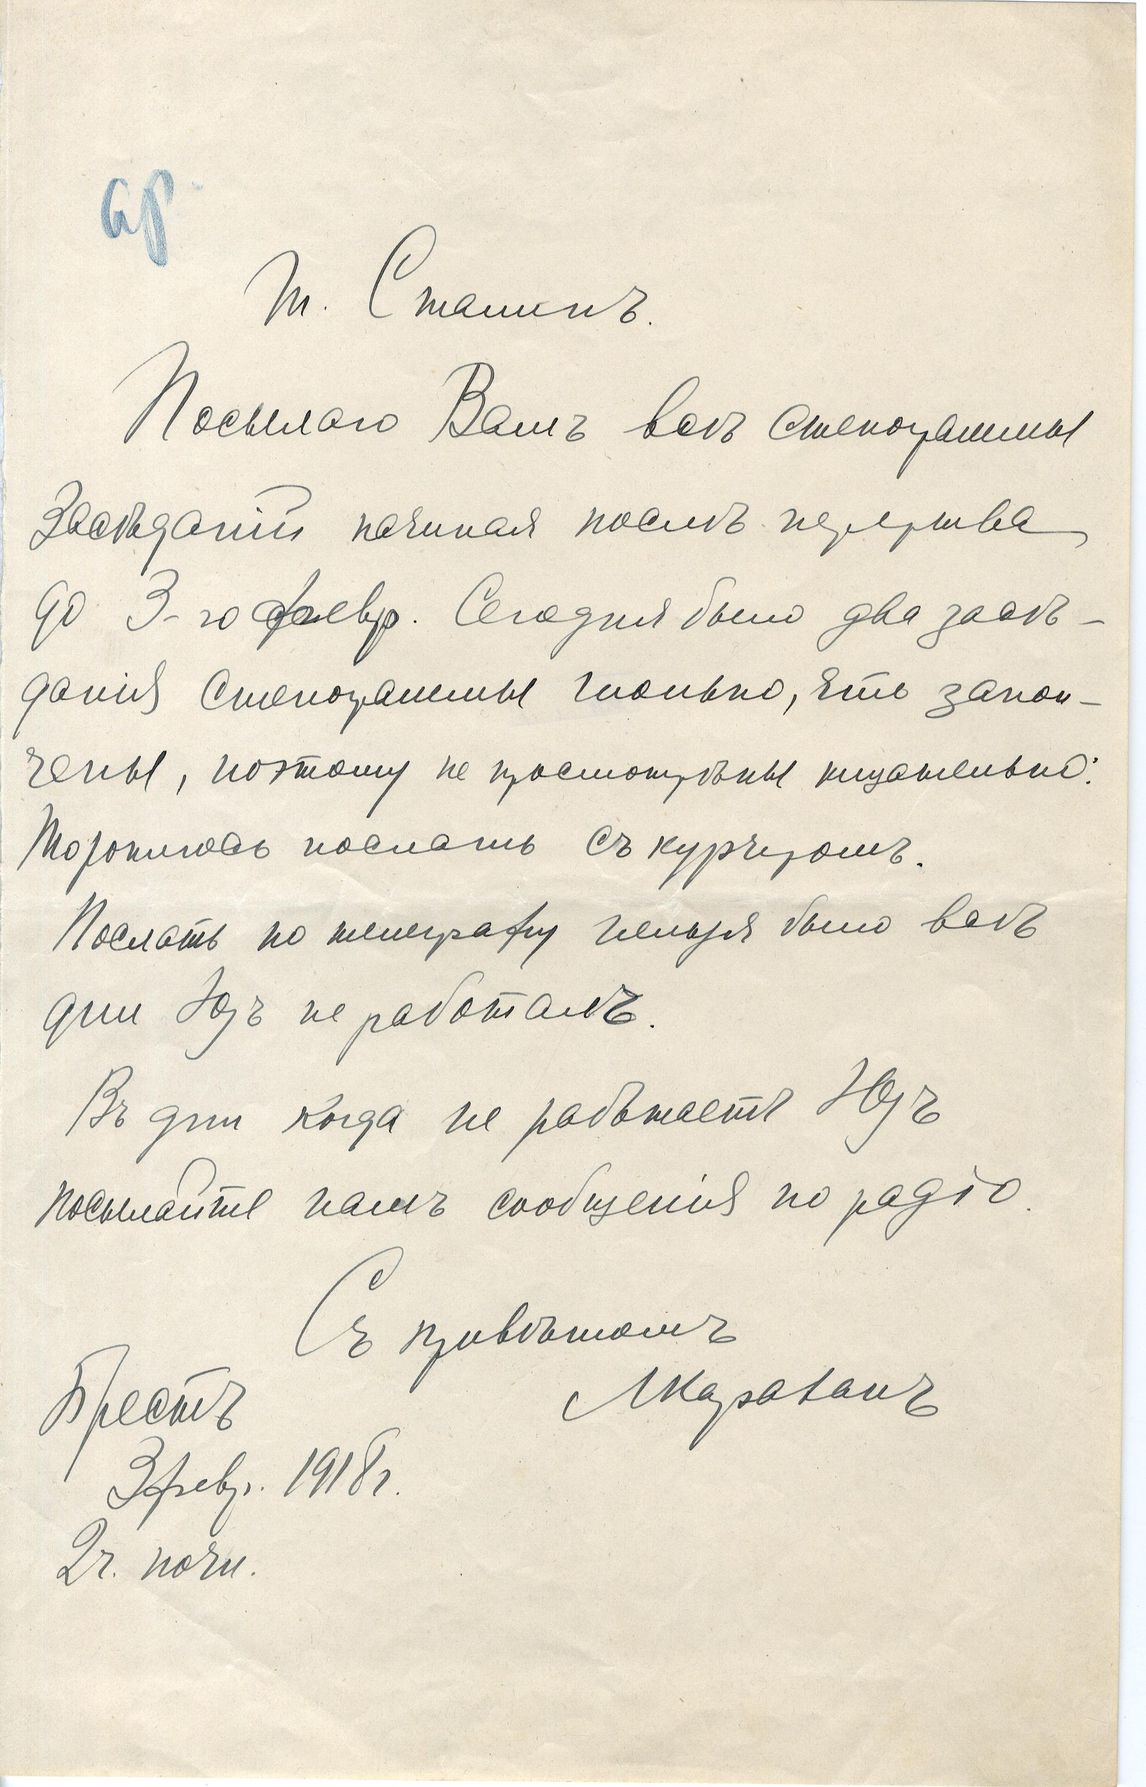 ар
Т. Сталинъ.
Посылаю Вамъ всѣ стенограммы
Засѣданій начиная послѣ перерыва
до 3-го февр. Сегодня было два засѣ-
данія стенограммы только, что закон-
чены, поэтому не просмотрѣны тщательно:
Тороплюсь послать съ курьеромъ.
Послать по телеграфу нельзя было всѣ
дни Юзъ не работалъ.
Въ дни когда не работаетъ Юзъ
посылайте намъ сообщенія по радіо.
Съ привѣтомъ
ЛКараханъ
Брестъ
3 февр. 1918 г.
2 ч. ночи.